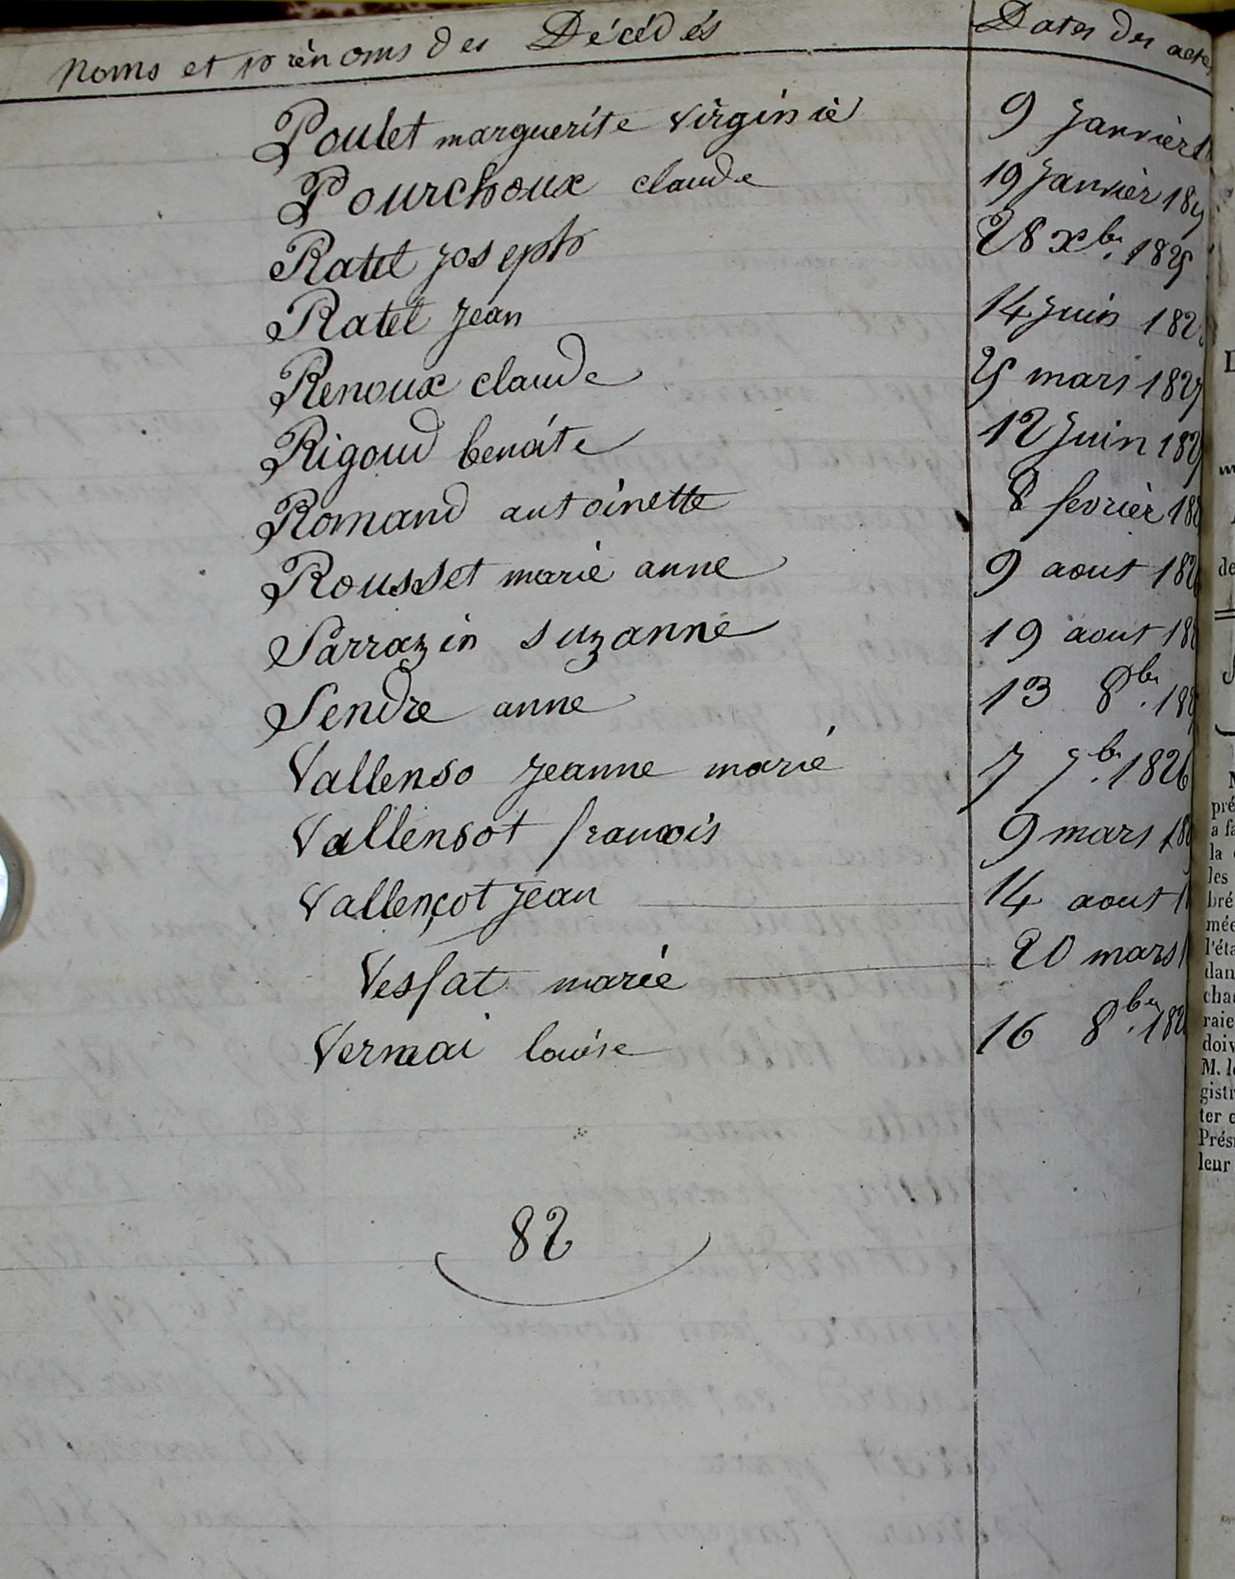 Noms et prénoms des Décédés Dates des actes
Poulet marguerite Virginie 9 Janvier 1
Pourchoux claude 19 Janvier 182
Ratel Joseph 28 xbre. 1825
Ratel Jean 14 Juin 182
Renoux claude 25 mars 182
Rigoud benoite 12 Juin 182
Romand antoinette 8 fevrier 18
Rousset marie anne 9 aout 182
Sarrazin suzanne 19 aout 18
Sendre anne 13 8bre. 18
Vallenso Jeanne marie 7 7bre. 1826
Vallensot francois 9 mars 18
Vallençot Jean 14 aout 1
Vesfat marie 20 mars 1
Vermai louise 16 8bre. 182
82
pré
a fa
la
les
bré
mée
l'éta
dan
chac
raie
doiv
M. le
gistr
ter
Prési
leur